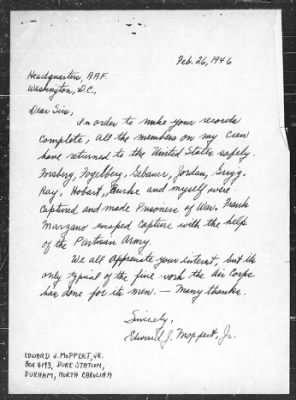 Feb. 26, 1946
Headquarters, A.A.F.
Washington, D.C.,
Dear Sirs,
In order to make your records
complete, all the members on my crew
have returned to the United States safely.
Forsberg, Fogelberg, Gebauer, Jordan, Grigg,
Ray, Hobart, Burke and myself were
captured and made Prisoners of War. Frank
Margano escaped capture with the help
of the Partisan Army.
We all appreciate your interest, but its
only typical of the fine work the Air Corps
has done for its men. — Many thanks.
Sincerely,
Edward J. Moppert, Jr.
EDWARD J. MOPPERT, JR.
BOX 4193, DUKE STATION,
DURHAM, NORTH CAROLINA